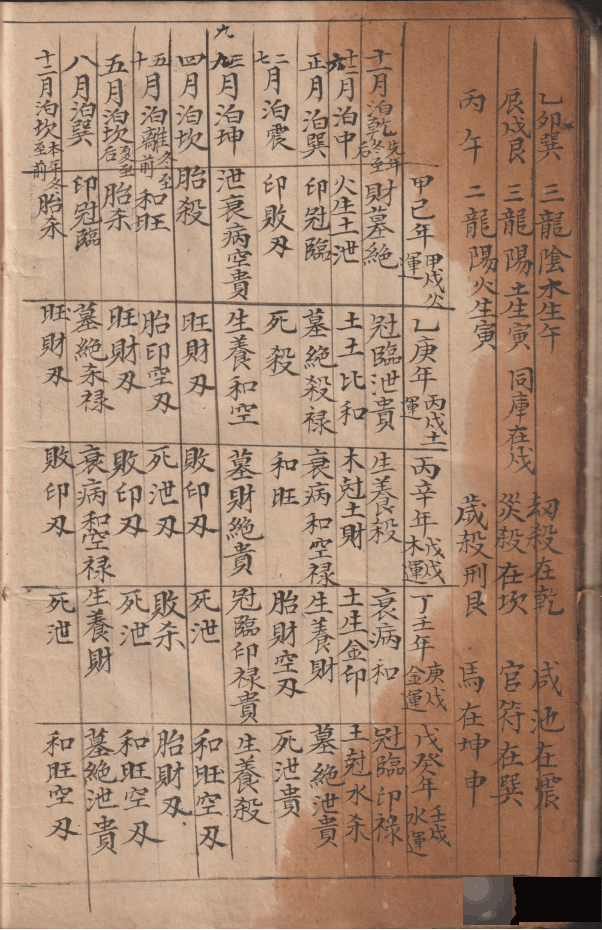 乙卯巽 三龍陰水生午 劫殺在乾 咸池在震
辰戌艮 三龍陽土生寅 同庫在戌 災殺在坎 官符在巽
丙午 二龍陽火生寅 歲殺刑艮 馬在坤申
甲己年 甲戌火運 乙庚年 丙戌土運 丙辛年 戊戌木運 丁壬年 庚戌金運 戊癸年 壬戌水運
十一月泊乾 冬至后 財墓絶 冠臨泄貴 生養殺 衰病和 冠臨印禄
十二 六月泊中 火生土泄 土土比和 木尅土財 土生金印 土尅水杀
正月泊巽 印冠臨 墓絶殺禄 衰病和空禄 生養財 墓絶泄貴
二七月泊震 印敗刃 死殺 和旺 胎財空刃 死泄貴
三九月泊坤 泄衰病空貴 生養和空 墓財絶貴 冠臨印禄貴 生養殺
九
四月泊坎 胎殺 旺財刃 敗印刃 死泄 和旺空刃
五十月泊離 冬至前 和旺 胎印空刃 死泄刃 敗杀 胎財刃
五月泊坎 夏至后 胎杀 旺財刃 敗印刃 死泄 和旺空刃
八月泊巽 印冠臨 墓絶杀禄 衰病和空禄 生養財 墓絶泄貴
十二月泊坎 本年冬至前 胎杀 旺財刃 敗印刃 死泄 和旺空刃